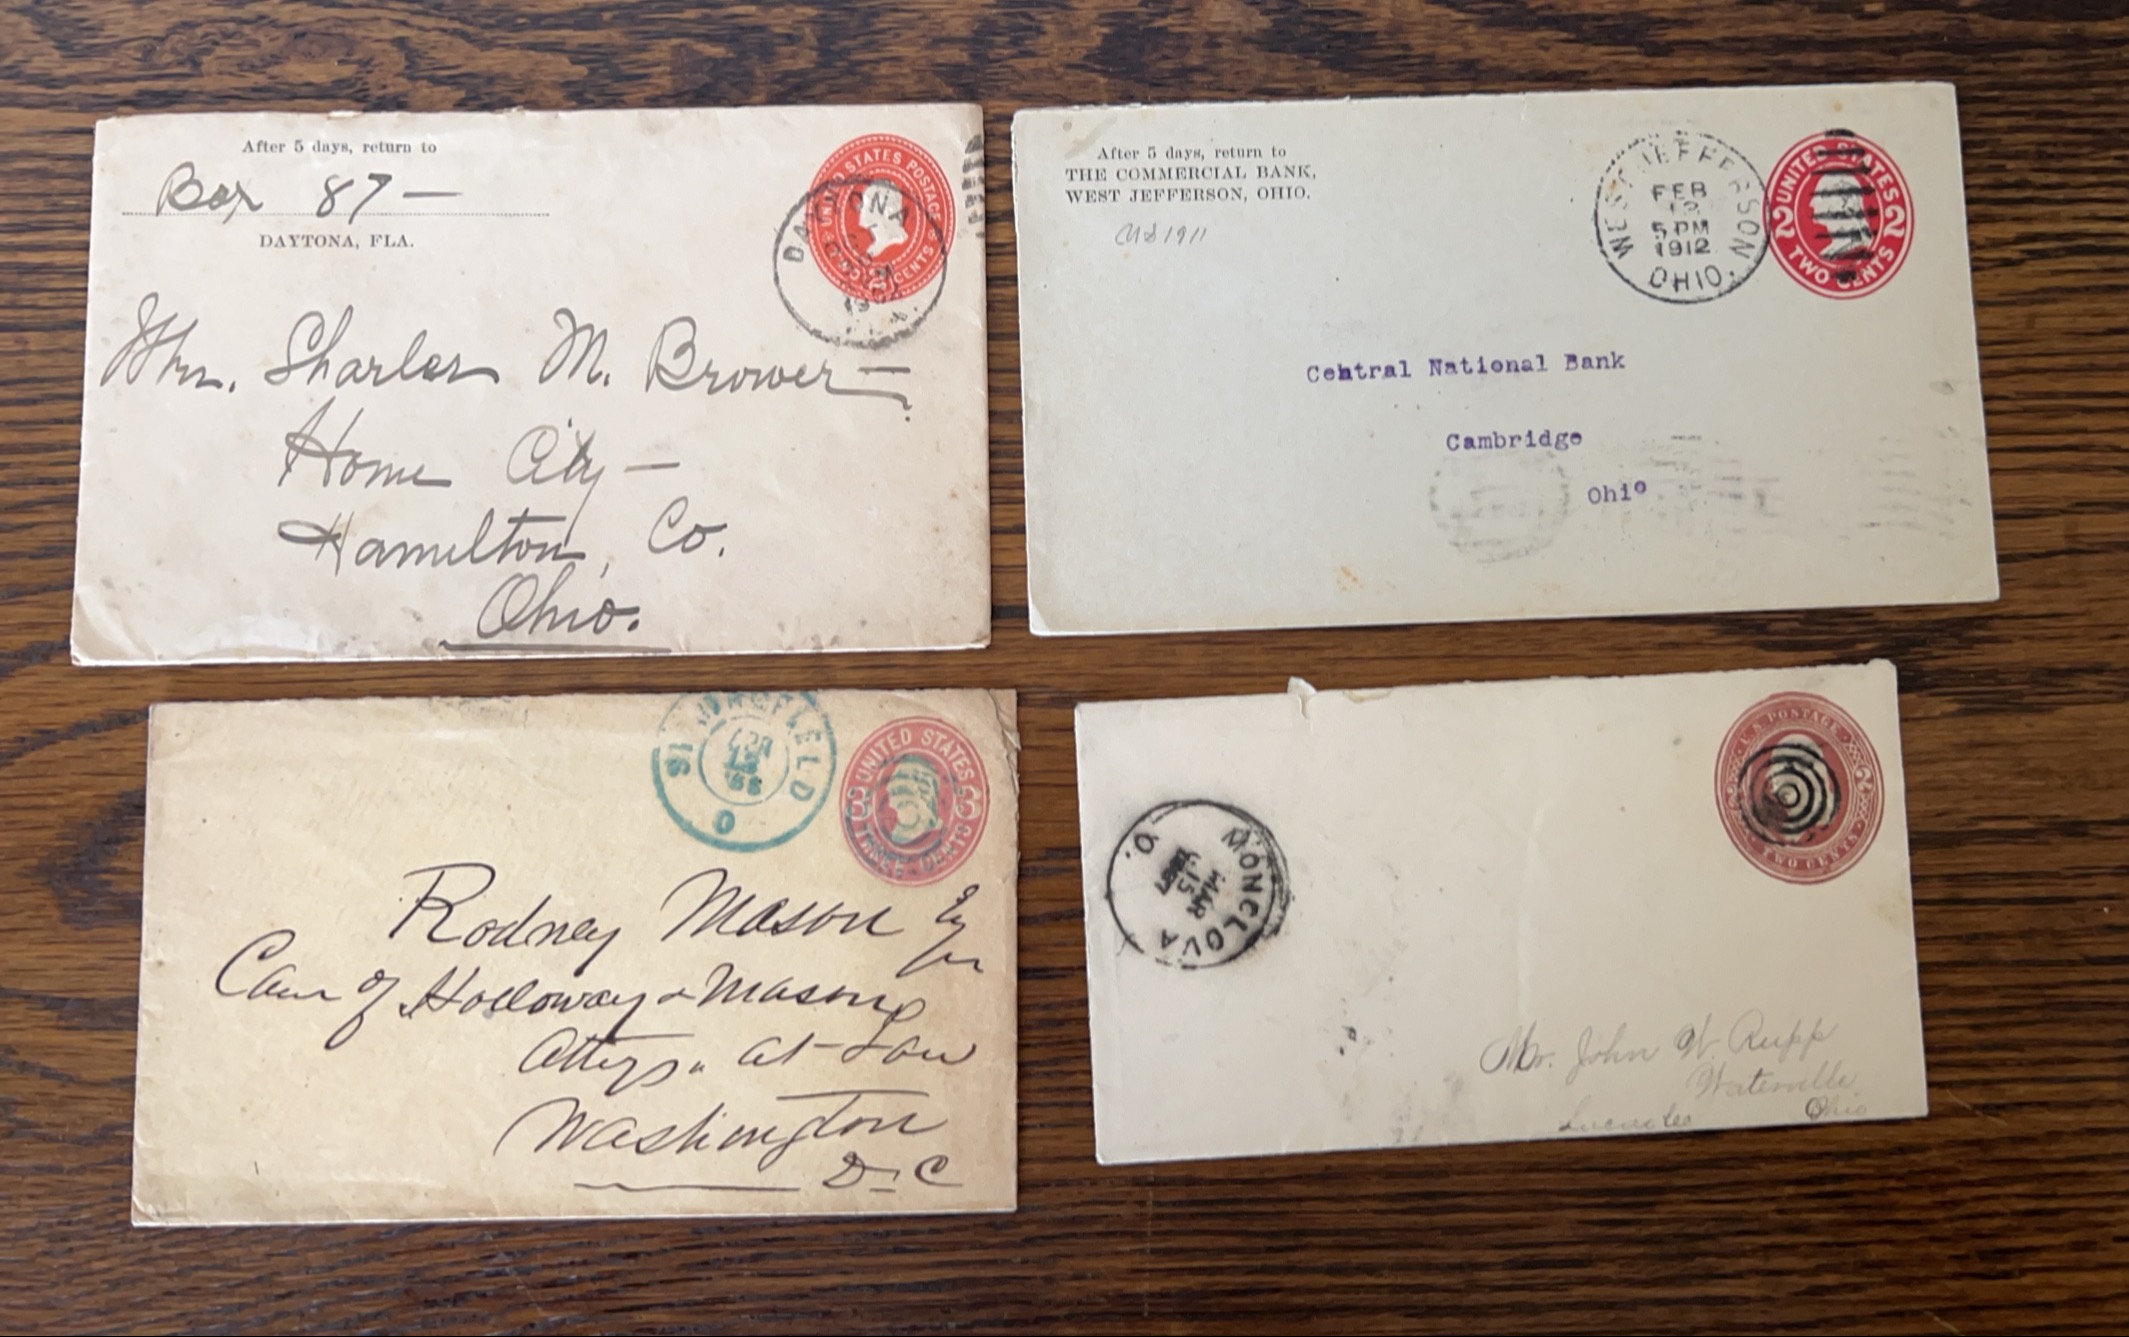 After 5 days, return to
Box 87 —
DAYTONA, FLA.
UNITED STATES POSTAGE
TWO CENTS
DAYTONA
Charles M. Brower —
Home City —
Hamilton, Co.
Ohio.
After 5 days, return to
THE COMMERCIAL BANK,
WEST JEFFERSON, OHIO.
1911
WEST JEFFERSON
FEB
5 PM
1912
OHIO.
UNITED STATES
2 2
TWO CENTS
Central National Bank
Cambridge
Ohio
SPRINGFIELD
O
UNITED STATES
3 3
THREE CENTS
Rodney Mason
Care of Holloway & Mason
Attys. at Law
Washington
D. C
MONCLOVA
O.
MAR
15
U.S. POSTAGE
2 2
TWO CENTS
Mr. John W. Rupp
Waterville
Lucas Co
Ohio